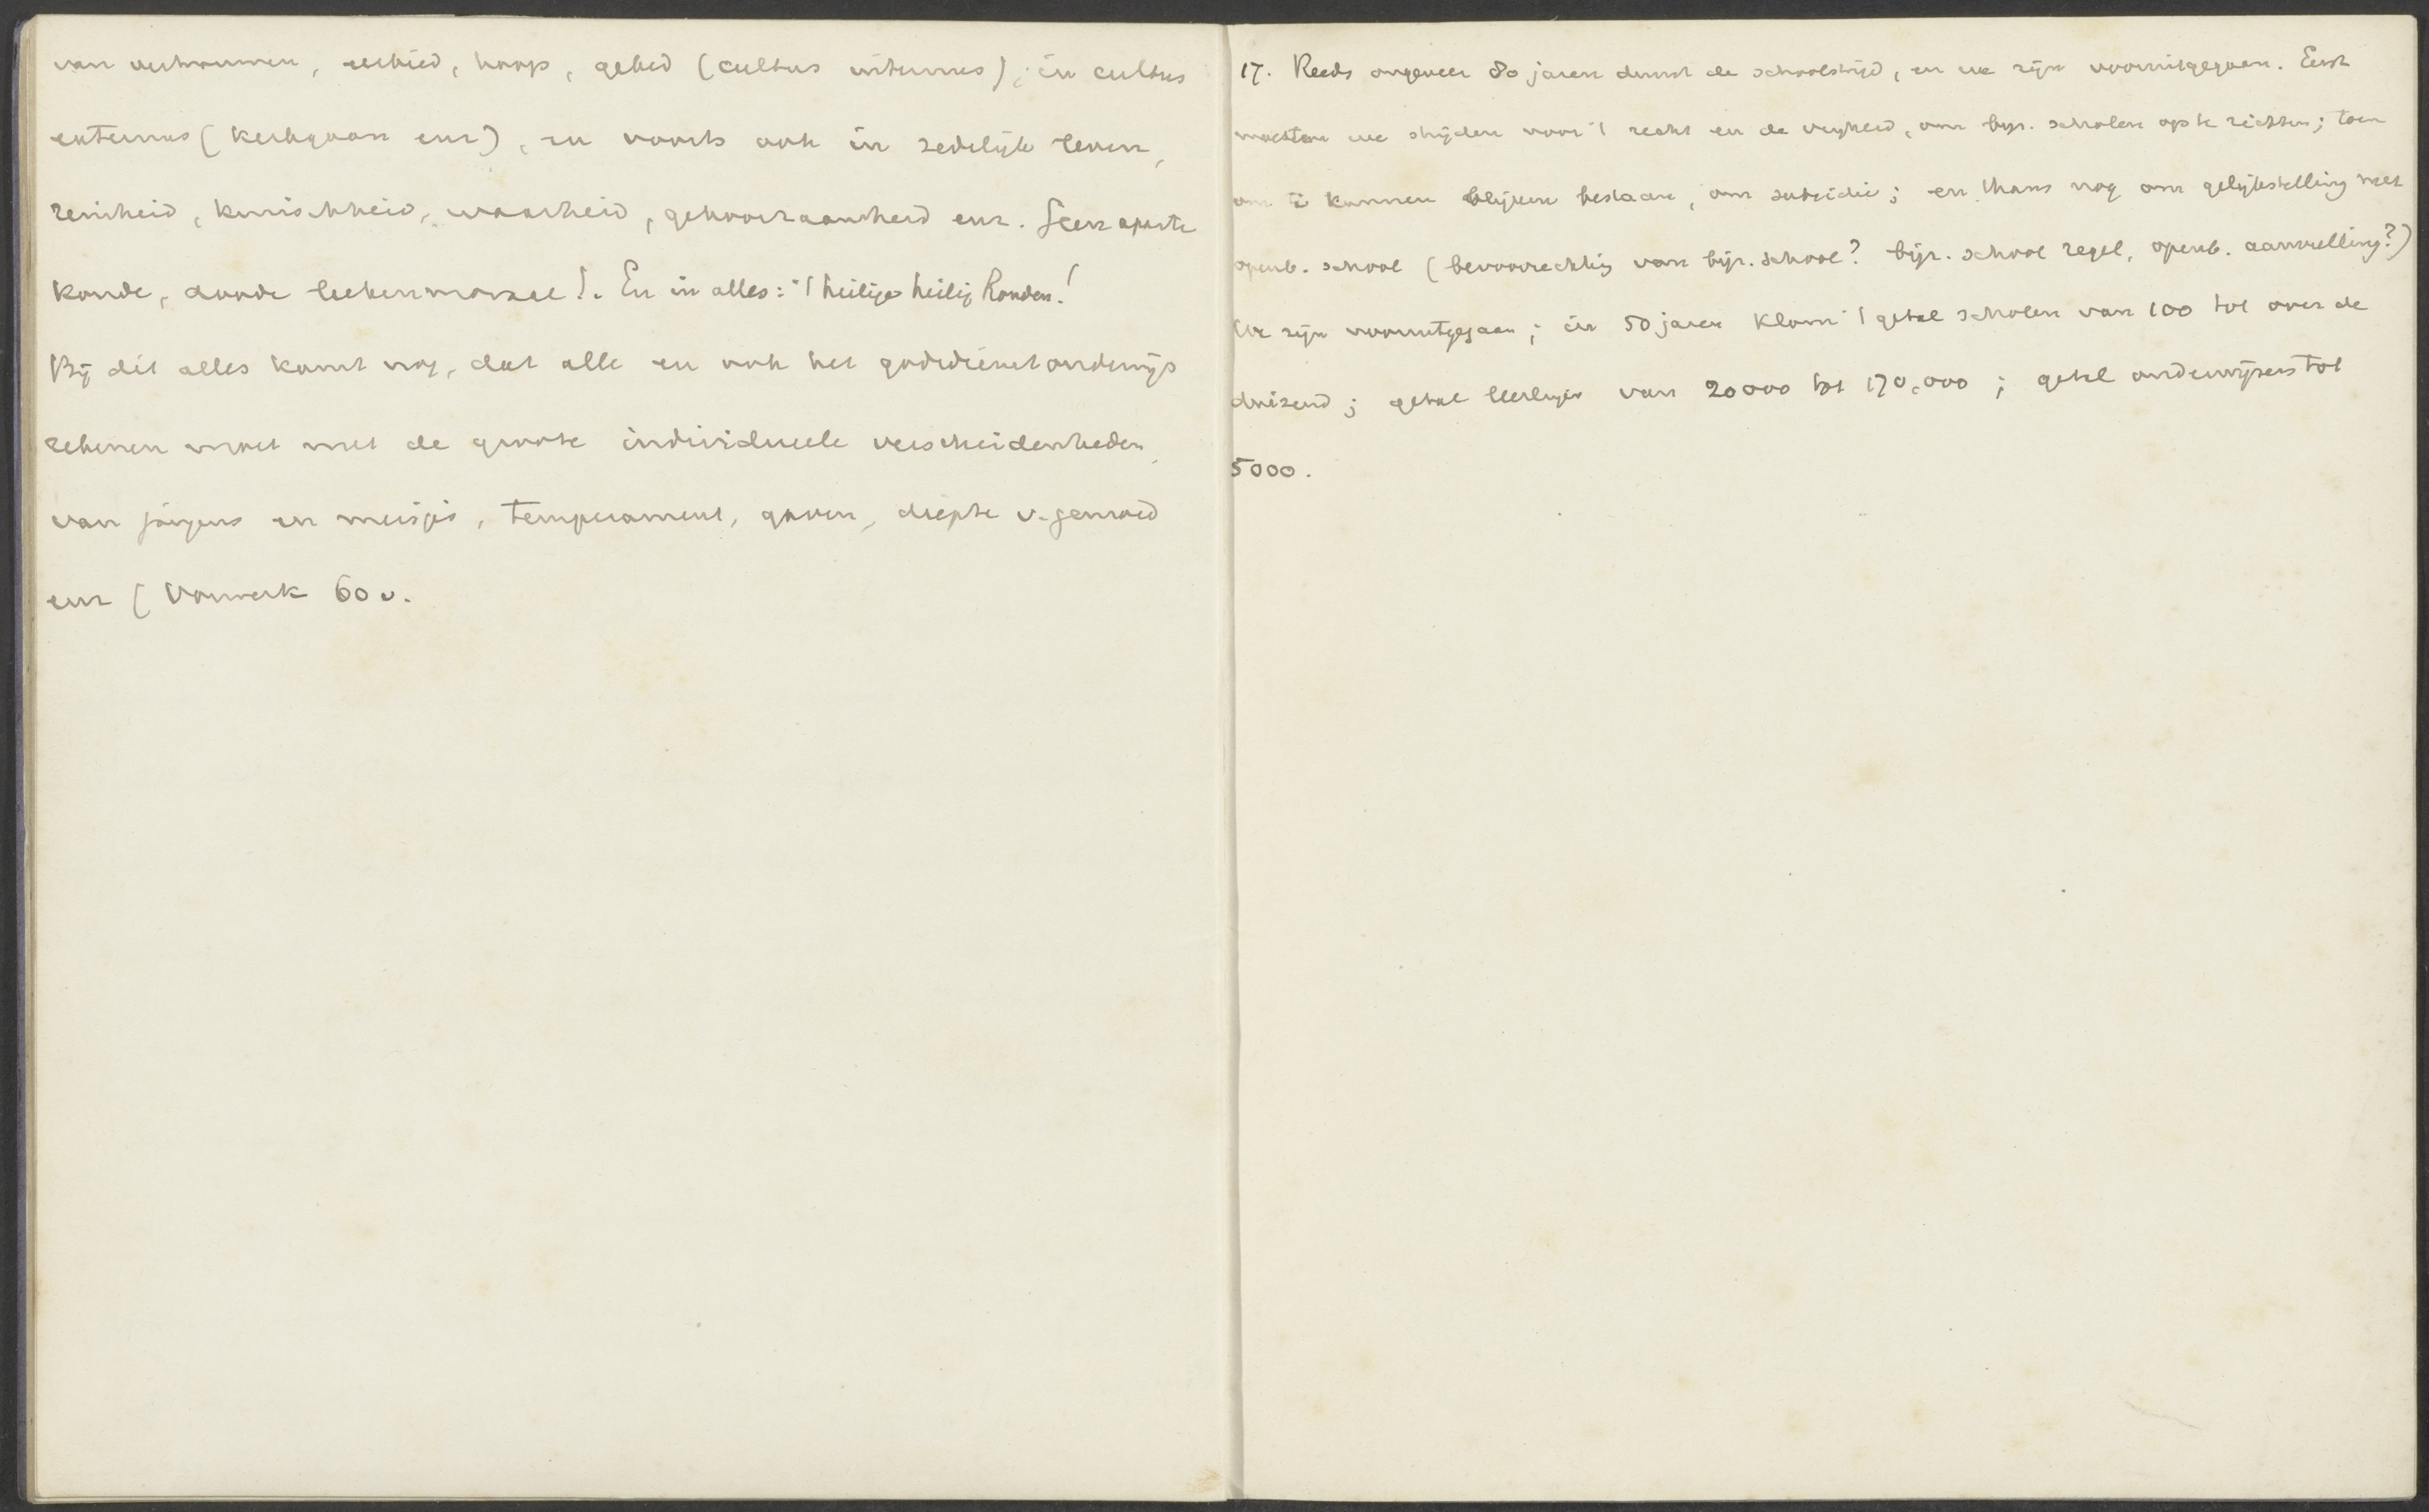 van vertrouwen, eerbied, hoop, gebed (cultus internus); in cultus
externus (kerkgaan enz), en voorts ook in zedelijk leven,
reinheid, kuischheid, waarheid, gehoorzaamheid enz. Geen aparte
koude, doode leekenmoraal!. En in alles: 't heilige heilig houden!
Bij dit alles komt nog, dat alle en ook het godsdienstonderwijs
rekenen moet met de groote individueele verscheidenheden,
van jongens en meisjes, temperament, gaven, diepte v. gemoed
enz (Vorwerk 60 v.
17. Reeds ongeveer 80 jaren duurt de schoolstrijd, en we zijn vooruitgegaan. Eerst
moesten we strijden voor 't recht en de vrijheid, om bijz. scholen op te richten; toen
om te kunnen blijven bestaan, om subsidie; en thans nog om gelijkstelling met
openb. school (bevoorrechting van bijz. school? bijz. school regel, openb. aanvulling?)
We zijn vooruitgegaan; in 50 jaren klom 't getal scholen van 100 tot over de
duizend; getal leerlingen van 20000 tot 170,000; getal onderwijzers tot
5000.